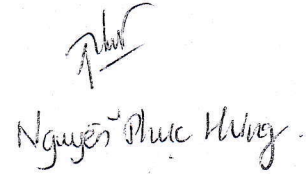 Nguyễn Phục Hưng.